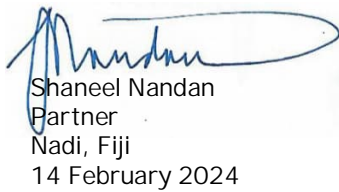 Shaneel Nandan
Partner
Nadi, Fiji
14 February 2024